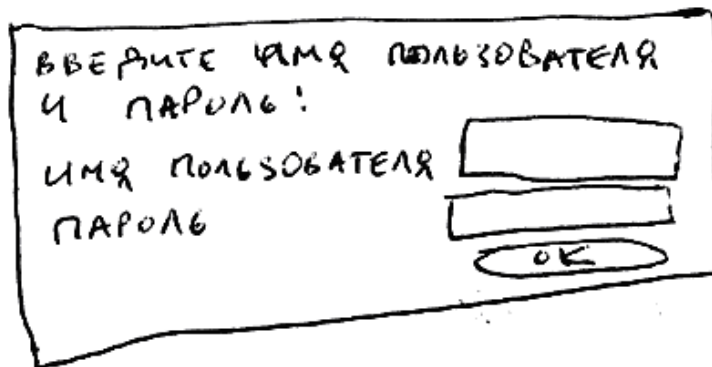 ВВЕДИТЕ ИМЯ ПОЛЬЗОВАТЕЛЯ
И ПАРОЛЬ:
ИМЯ ПОЛЬЗОВАТЕЛЯ
ПАРОЛЬ
OK